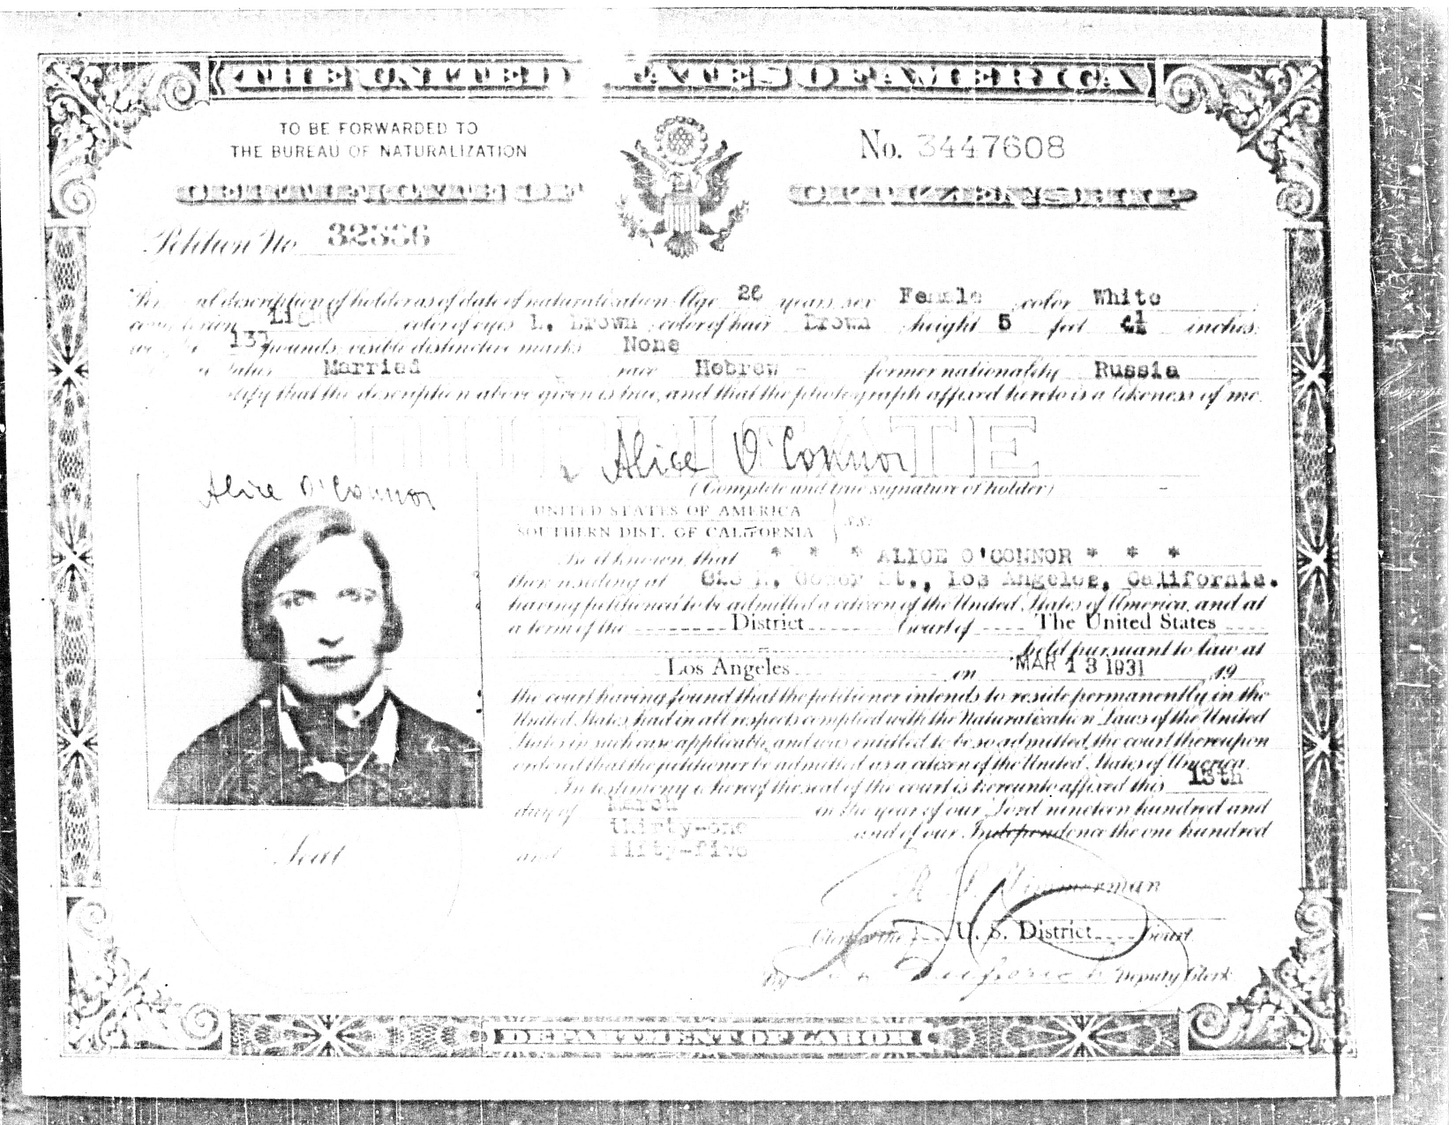 THE UNITED STATES OF AMERICA
TO BE FORWARDED TO
THE BUREAU OF NATURALIZATION
No. 3447608
CERTIFICATE OF CITIZENSHIP
Petition No
description of holder as of date of naturalization: Age 26 years, sex Female, color White
Light color of eyes L. Brown, color of hair Brown, height 5 feet 4½ inches;
137 pounds; visible distinctive marks None
Married race Hebrew - former nationality Russia
that the description above given is true, and that the photograph affixed hereto is a likeness of me.
DUPLICATE
Alice O'Connor
(Complete and true signature of holder)
Alice O'Connor
UNITED STATES OF AMERICA
SOUTHERN DIST. OF CALIFORNIA } ss:
Be it known that * * * ALICE O'CONNOR * * *
then residing at St., Los Angeles, California.
having petitioned to be admitted a citizen of the United States of America, and at
a term of the District Court of The United States
held pursuant to law at
Los Angeles on MAR 13 1931 19
the court having found that the petitioner intends to reside permanently in the
United States had in all respects complied with the Naturalization Laws of the United
States in such case applicable, and was entitled to be so admitted, the court thereupon
ordered that the petitioner be admitted as a citizen of the United States of America.
In testimony whereof the seal of the court is hereunto affixed this 13th
day of March in the year of our Lord nineteen hundred and
thirty-one and of our Independence the one hundred
and fifty-five
Seal
R. S. Zimmerman
Clerk of the U. S. District Court.
By Deputy Clerk
DEPARTMENT OF LABOR